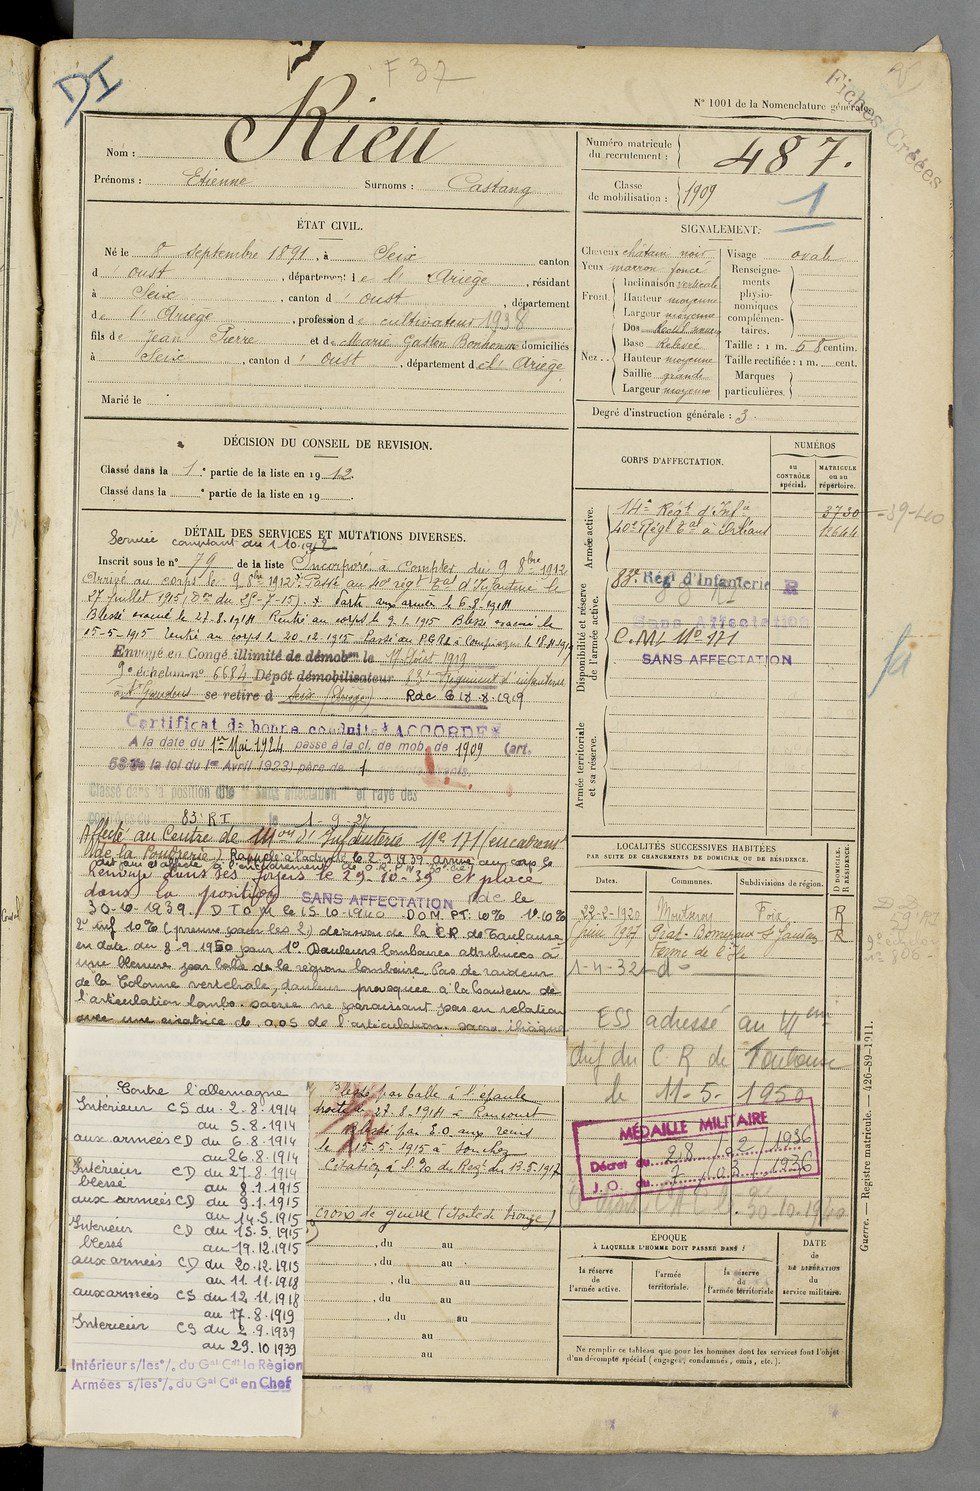 DI
F 37
N° 1001 de la Nomenclature générale.
Fiches Créées
Nom : Rieu
Prénoms : Etienne Surnoms : Castang
Numéro matricule du recrutement : 487.
Classe de mobilisation : 1909
1
ÉTAT CIVIL.
Né le 8 septembre 1891, à Seix canton
d'oust, département de l'Ariège, résidant
à Seix, canton d'oust, département
de l'Ariège, profession de cultivateur 1938
fils de Jean Pierre et de Marie Gaston Bonhomme domiciliés
à Seix, canton d'oust, département de l'Ariège
Marié le
SIGNALEMENT.
Cheveux châtain noir
Yeux marron foncé
Front. Inclinaison verticale
Hauteur moyenne
Largeur moyenne
Nez. Dos
Base Relevée
Hauteur moyenne
Saillie grande
Largeur moyenne
Visage ovale
Renseignements physionomiques complémentaires.
Taille : 1 m. 68 centim.
Taille rectifiée : 1 m. cent.
Marques particulières.
Degré d'instruction générale : 3
DÉCISION DU CONSEIL DE REVISION.
Classé dans la 1e partie de la liste en 1912
Classé dans la e partie de la liste en 19
DÉTAIL DES SERVICES ET MUTATIONS DIVERSES.
Service comptant du 1.10.1912
Inscrit sous le n° 79 de la liste Incorporé à compter du 9 8bre 1912
Arrivé au corps le 9 8bre 1912. Passé au 40e régt Tal d'Infanterie le
27 juillet 1915 (Don du 25-7-15). Parti aux armées le 6.8.1914
Blessé évacué le 27.8.1914 Rentré au corps le 9.1.1915 Blessé évacué le
15-5-1915 Rentré au corps le 20.12.1915 Passé au PGRL à Compiègne le 18.11.191
Envoyé en Congé illimité de démobon le 17 Août 1919
9e échelon n° 6684 Dépôt démobilisateur 83e Régiment d'infanterie
à St Gaudens se retire à Seix (Ariège) Rdc le 18.8.1919
Certificat de bonne conduite ACCORDÉ
A la date du 1er Mai 1924 passé à la cl. de mob. de 1909 (art.
58 de la loi du 1er Avril 1923) père de 1 enfants.
Classé dans la position dite "sans affectation" et rayé des
83e RI le 1-9-27
Affecté au Centre de Mon d'Infanterie N° 171 (encadremt
de la Poudrerie) Rappelé à l'activité le 2.9.1939 arrivé au corps le
Renvoyé dans ses foyers le 29-10-39 et placé
dans la position SANS AFFECTATION rdc le
30-10-1939. D T O M le 15.10.1940 D.O.M. PT: 10% 1° 10%
2° inf 10% (prenne pour les 2) décision de la C.R de Toulouse
en date du 8.9.1950 pour 1° Douleurs lombaires attribuées à
une blessure par balle de la région lombaire. Pas de raideur
de la Colonne vertébrale, douleur provoquée à la hauteur de
l'articulation lombo-sacrée ne paraissant pas en relation
avec une cicatrice de 0,05 de l'articulation sacro iliaque
CORPS D'AFFECTATION.
NUMÉROS
au CONTRÔLE spécial.
MATRICULE ou au répertoire.
Armée active.
14e Régt d'Infie 3730
40e Régt Tal d'Infant 12644
Disponibilité et réserve de l'armée active.
83e Régt d'Infanterie R
Sans Affectation
C.M.I. N° 171
SANS AFFECTATION
Armée territoriale et sa réserve.
LOCALITÉS SUCCESSIVES HABITÉES
PAR SUITE DE CHANGEMENTS DE DOMICILE OU DE RÉSIDENCE.
Dates. Communes. Subdivisions de région. D DOMICILE. R RÉSIDENCE.
22-2-1920 Foix R
Juin 1927 St Gaudens R
Ferme de l'Ile
1-4-32 -d°-
ESS adressé au Mem
chef du C.R de Toulouse
le 11-5-1950
MÉDAILLE MILITAIRE
Décret du 28/2/1936
J.O. du 7/03/1936
30.10.1940
Contre l'allemagne
Intérieur CS du 2.8.1914
au 5.8.1914
aux armées CD du 6.8.1914
au 26.8.1914
Intérieur CD du 27.8.1914
blessé au 8.1.1915
aux armées CD du 9.1.1915
au 14.5.1915
Intérieur CD du 15.5.1915
blessé au 19.12.1915
aux armées CD du 20.12.1915
au 11.11.1918
aux armées CS du 12.11.1918
au 17.8.1919
Intérieur CS du 2.9.1939
au 29.10.1939
Intérieur s/les °/. du Gal Cdt la Règion
Armées s/les °/. du Gal Cdt en Chef
Blessé par balle à l'épaule
droite le 27.8.1914 à Raucourt
Blessé par E.O aux reins
le 15.5.1915 à Souchez
Citation à l'O du Regt du 13.5.1917
Croix de guerre (étoile de bronze)
, du au
, du au
, du au
, du au
, du au
au
au
ÉPOQUE
À LAQUELLE L'HOMME DOIT PASSER DANS :
la réserve de l'armée active.
l'armée territoriale.
la réserve de l'armée territoriale
DATE de LIBÉRATION du service militaire.
Ne remplir ce tableau que pour les hommes dont les services font l'objet
d'un décompte spécial (engagés, condamnés, omis, etc.).
Guerre. — Registre matricule. — 426-89-1911.